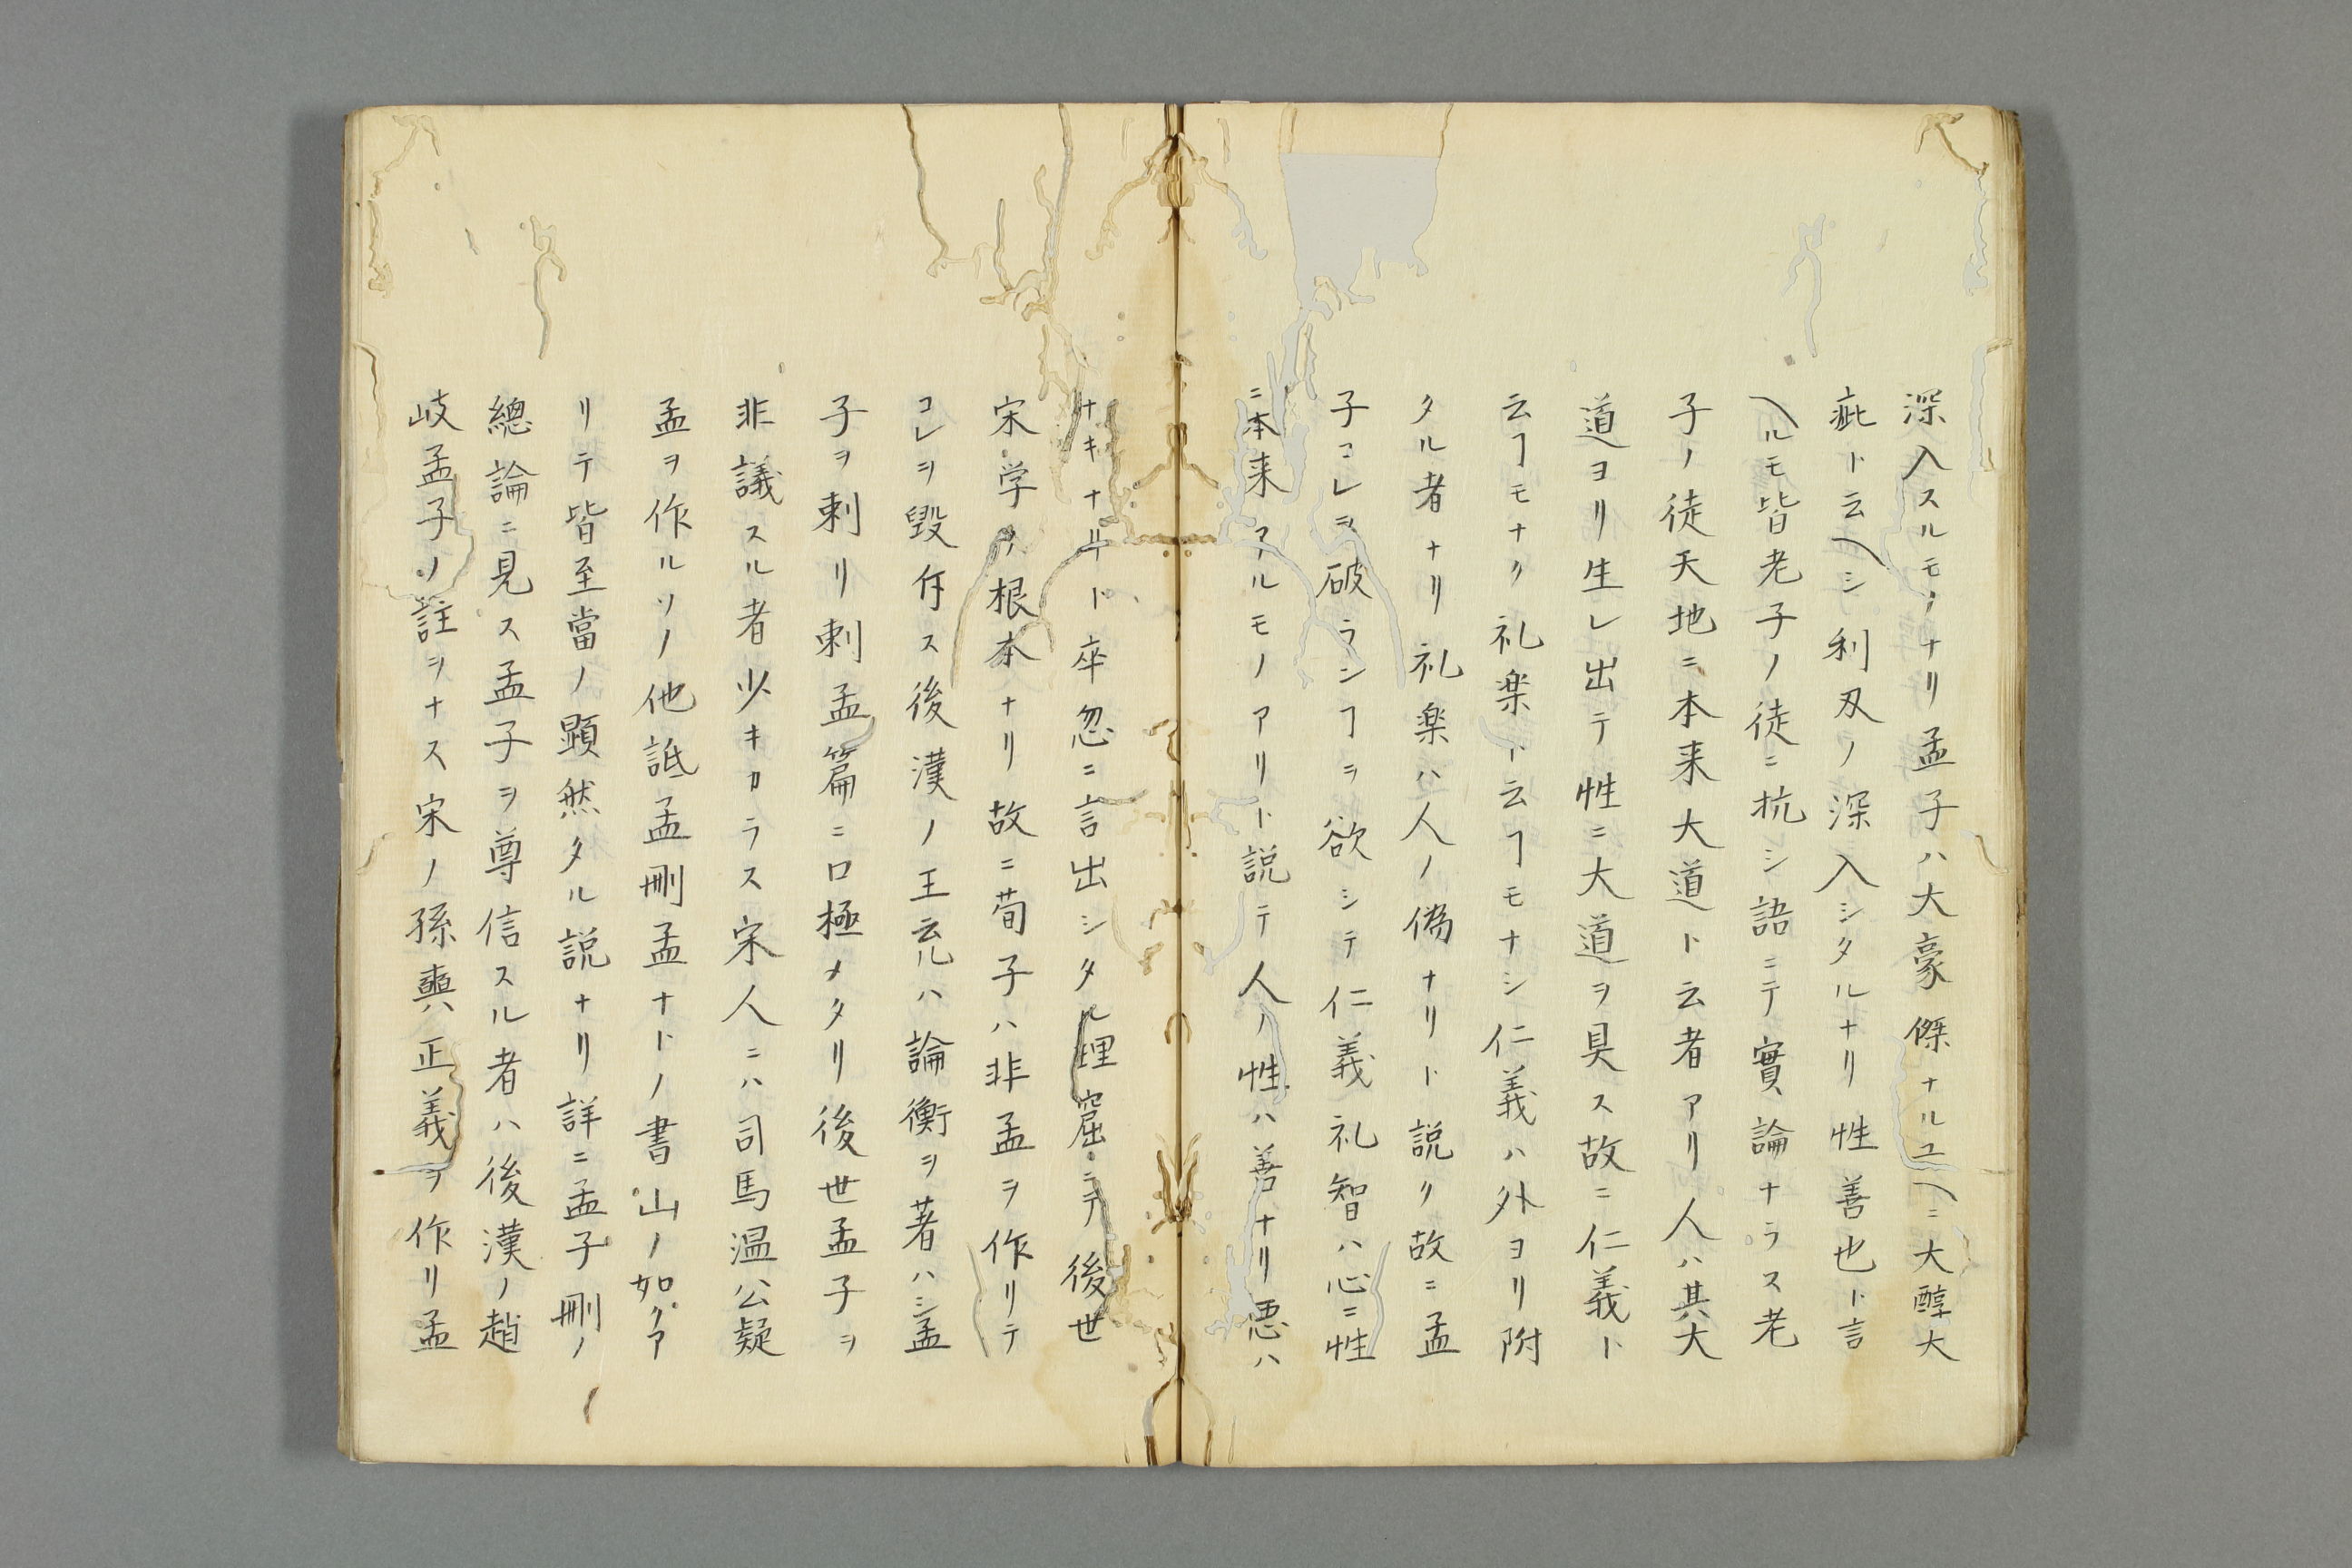 深入スルモノナリ孟子ハ大豪傑ナルユヘニ大醇大
疵ト云ヘシ利刃ノ深入シタルナリ性善也ト言
ヘルモ皆老子ノ徒ニ抗シ語ニテ實論ナラス老
子ノ徒天地ニ本来大道ト云者アリ人ハ其大
道ヨリ生レ出テ性ニ大道ヲ具ス故ニ仁義ト
云ヿモナク礼楽ト云ヿモナシ仁義ハ外ヨリ附
タル者ナリ礼楽ハ人ノ偽ナリト説ク故ニ孟
子コレヲ破ランヿヲ欲シテ仁義礼智ハ心ニ性
ニ本来アルモノアリト説テ人ノ性ハ善ナリ悪ハ
ナキナリト卒忽ニ言出シタル理窟ニテ後世
宋学ノ根本ナリ故ニ荀子ハ非孟ヲ作リテ
コレヲ毀斥ス後漢ノ王充ハ論衡ヲ著ハシ孟
子ヲ刺リ刺孟篇ニ口極メタリ後世孟子ヲ
非議スル者少キカラス宋人ニハ司馬温公疑
孟ヲ作ルソノ他詆孟刪孟ナトノ書山ノ如クア
リテ皆至當ノ顕然タル説ナリ詳ニ孟子刪ノ
總論ニ見ス孟子ヲ尊信スル者ハ後漢ノ趙
岐孟子ノ註ヲナス宋ノ孫奭正義ヲ作リ孟